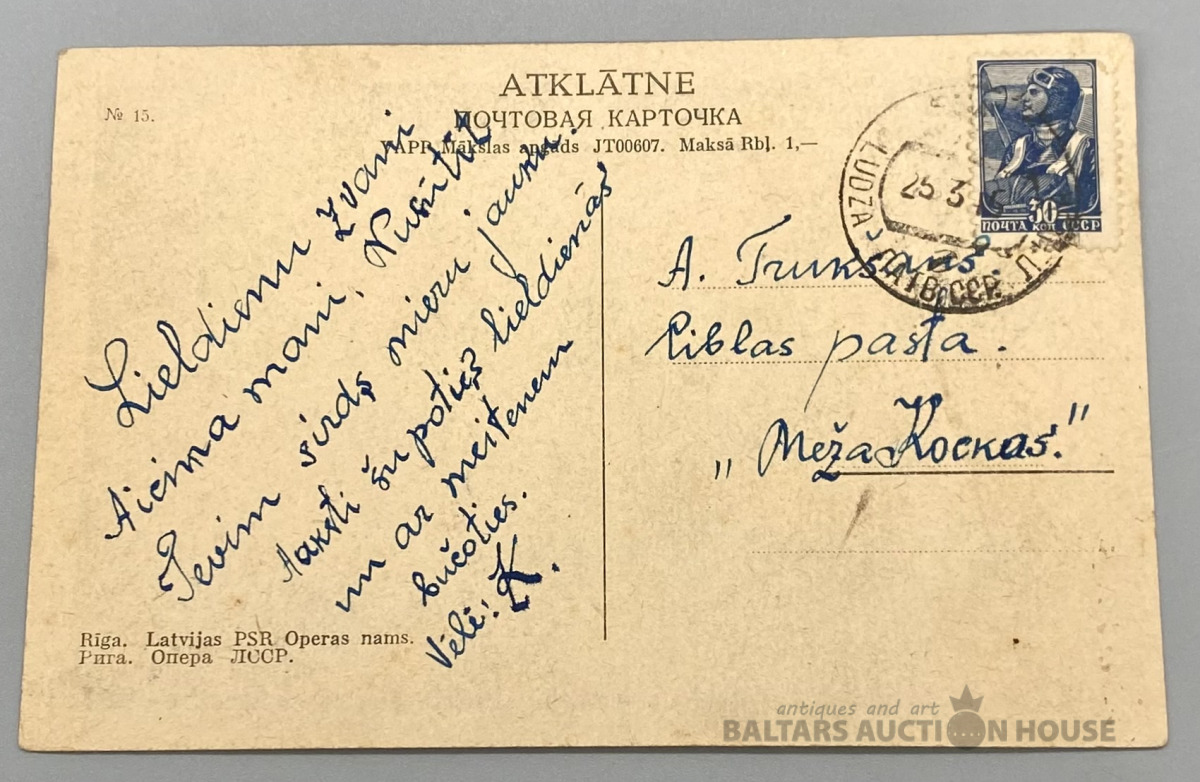 ATKLĀTNE
№ 15.
ПОЧТОВАЯ КАРТОЧКА
APP Mākslas apgāds JT00607. Maksā Rbļ. 1,—
Lieldienu Zvani
Aicina mani, Nusūtīt
Tevim sirds mieru jauku.
Aaksti šupoties lieldienās
un ar meitenem
bučoties.
Vēlē: K.
30
ПОЧТА КОП СССР
LUDZA
25 3
ЛАТВ. ССР.
A. Truksans.
Ciblas pasta.
„Meža Kockas."
Rīga. Latvijas PSR Operas nams.
Рига. Опера ЛССР.
antiques and art
BALTARS AUCTION HOUSE